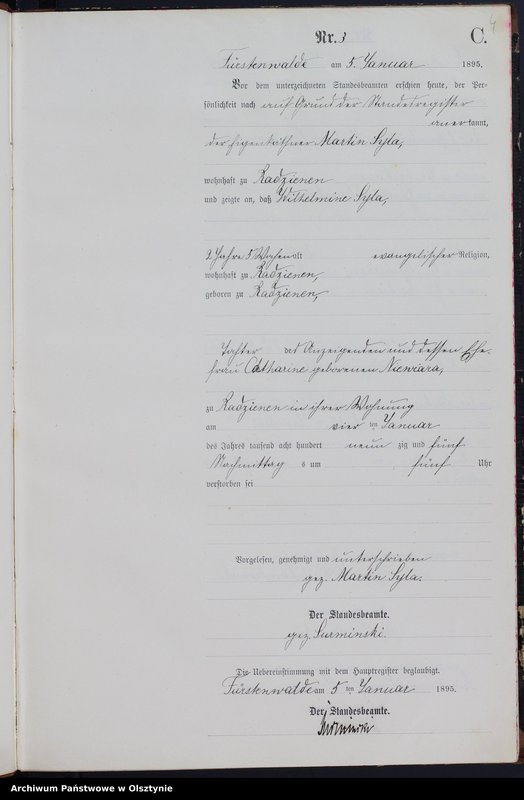 4
Nr. 3
C.
Fürstenwalde am 5. Januar 1895.
Vor dem unterzeichneten Standesbeamten erschien heute, der Per-
sönlichkeit nach auf Grund der Standesregister
anerkannt,
der Eigenkäthner Martin Syla,
wohnhaft zu Radzienen
und zeigte an, daß Wilhelmine Syla,
2 Jahre 5 Wochen alt evangelischer Religion,
wohnhaft zu Radzienen,
geboren zu Radzienen,
Tochter des Anzeigenden und dessen Ehe-
frau Catharine geborenen Niewiara,
zu Radzienen in ihrer Wohnung
am vier ten Januar
des Jahres tausend acht hundert neun zig und fünf
Nachmittags um fünf Uhr
verstorben sei
Vorgelesen, genehmigt und unterschrieben
gez. Martin Syla.
Der Standesbeamte.
gez. Surminski.
Die Uebereinstimmung mit dem Hauptregister beglaubigt.
Fürstenwalde am 5 ten Januar 1895.
Der Standesbeamte.
Surminski
Archiwum Państwowe w Olsztynie